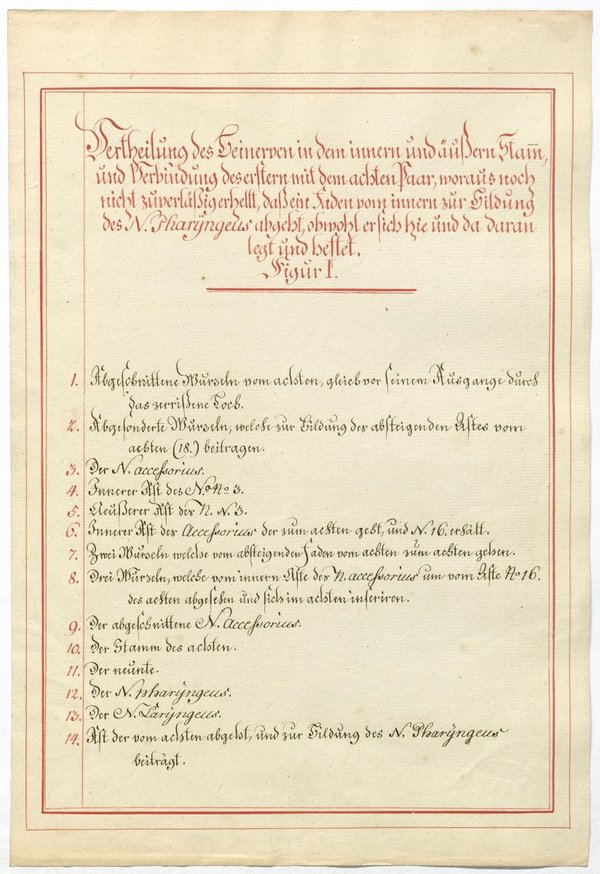 Vertheilung des Beinerven in dem innern und äußern Stam̄,
und Verbindung des erstern mit dem achten Paar, woraus noch
nicht zuverläßig erhellt, daß ein Faden vom innern zur Bildung
des N. Pharÿngeus abgeht, obwohl er sich hie und da daran
legt und heftet.
Figur I.
1. Abgeschnittene Wurzeln vom achten, gleich vor seinem Ausgange durch
das zerrißene Loch.
2. Abgesonderte Wurzeln, welche zur Bildung des absteigenden Astes vom
achten (18.) beitragen.
3. Der N. accessorius.
4. Innerer Ast des N. No 3.
5. Aeußerer Ast des N. N. 3.
6. Innerer Ast des Accessorius der zum achten geht, und N. 16. erhält.
7. Zwei Wurzeln welche vom absteigenden Faden vom achten zum achten gehen.
8. Drei Wurzeln, welche vom innern Aste des N. accessorius um vom Aste No 16.
des achten abgehen und sich im achten inseriren.
9. Der abgeschnittene N. Accessorius.
10. Der Stamm des achten.
11. Der neunte.
12. Der N. pharÿngeus.
13. Der N. Larÿngeus.
14. Ast der vom achten abgeht, und zur Bildung des N. Pharÿngeus
beiträgt.